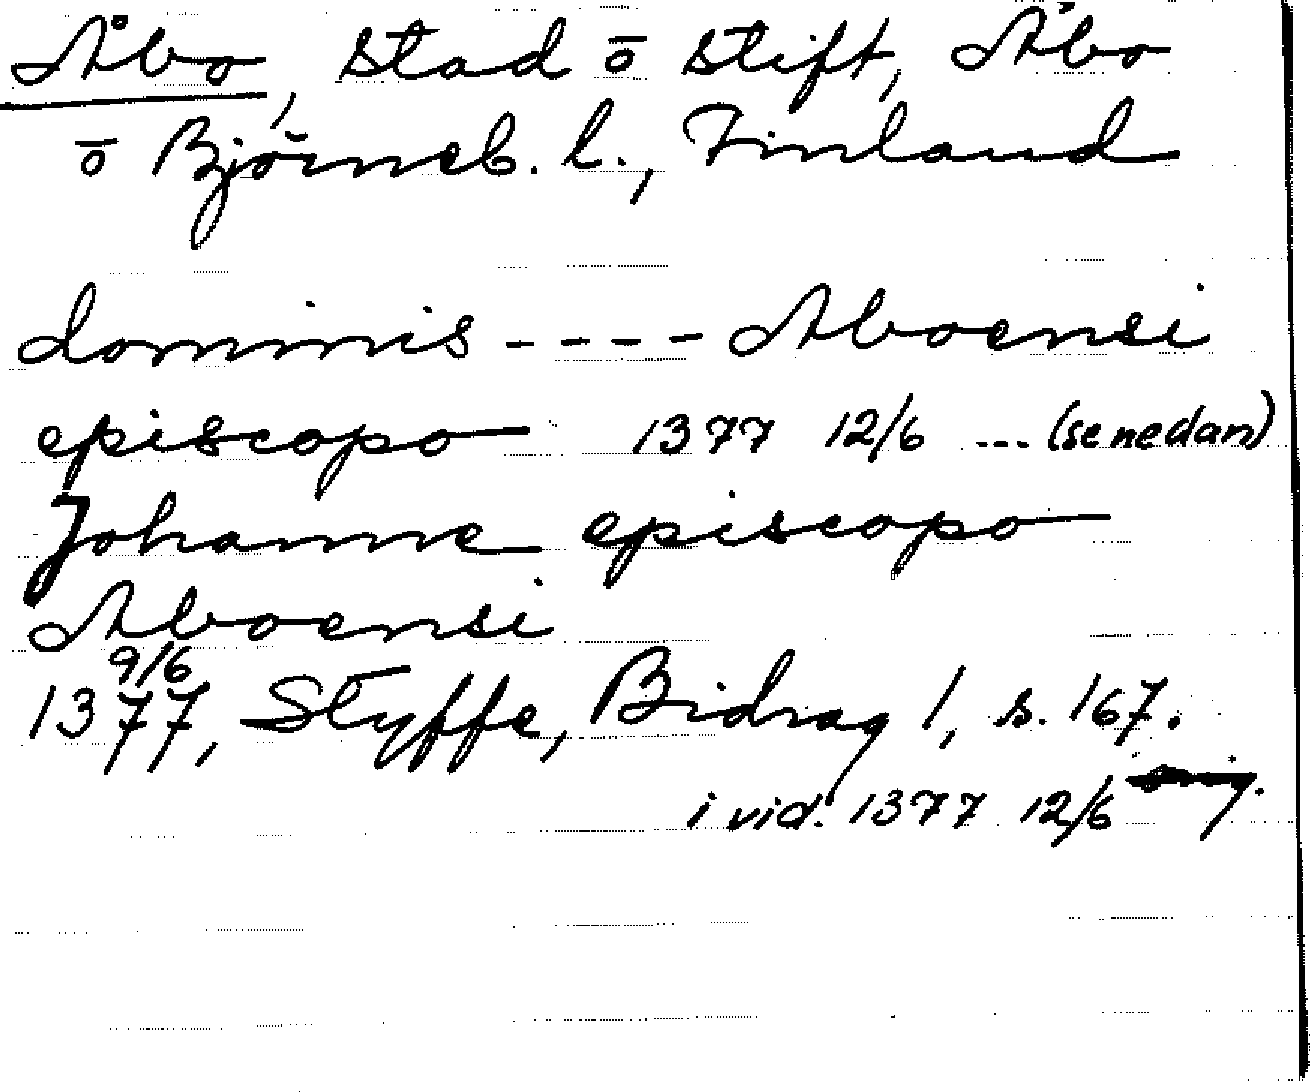 Åbo, stad ō stift, Åbo
ō Björneb. l., Finland
dominis - - - - Aboensi
episcopo 1377 12/6 --- (se nedan)
Johanne episcopo
Aboensi
9/6
1377, Styffe, Bidrag 1, s. 167.
i vid. 1377 12/6 orig.